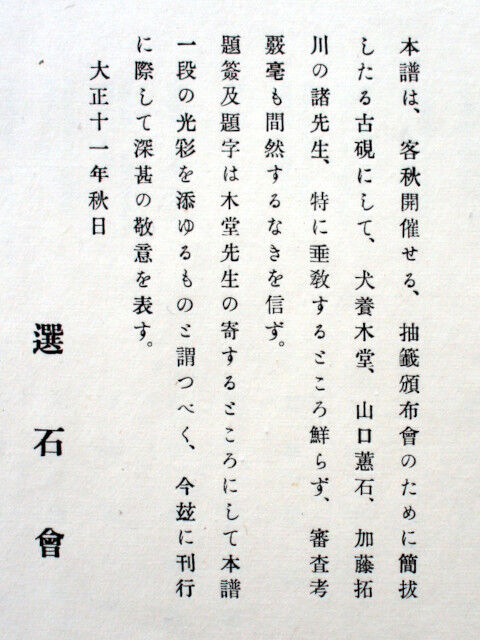 本譜は、客秋開催せる、抽籤頒布會のために簡拔
したる古硯にして、犬養木堂、山口蕙石、加藤拓
川の諸先生、特に垂敎するところ鮮らず、審査考
覈毫も間然するなきを信ず。
題簽及題字は木堂先生の寄するところにして本譜
一段の光彩を添ゆるものと謂つべく、今玆に刊行
に際して深甚の敬意を表す。
大正十一年秋日
選石會